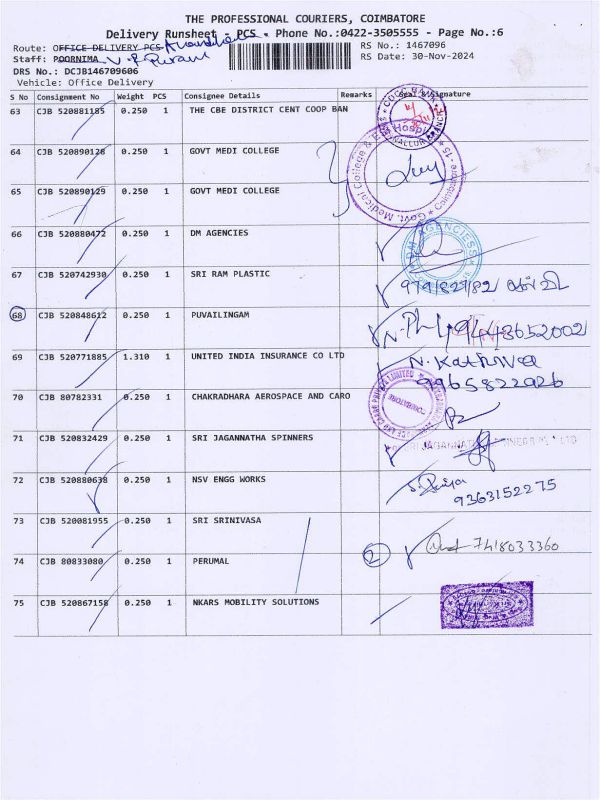 THE PROFESSIONAL COURIERS, COIMBATORE
Delivery Runsheet - PCS - Phone No.:0422-3505555 - Page No.:6
Route: OFFICE DELIVERY PCS
RS No.: 1467096
Staff: POORNIMA
RS Date: 30-Nov-2024
DRS No.: DCJB146709606
Vehicle: Office Delivery
S No Consignment No Weight PCS Consignee Details Remarks Seal & Signature
63 CJB 520881185 0.250 1 THE CBE DISTRICT CENT COOP BAN
64 CJB 520890128 0.250 1 GOVT MEDI COLLEGE
65 CJB 520890129 0.250 1 GOVT MEDI COLLEGE
Govt. Medical College
Coimbatore
66 CJB 520880472 0.250 1 DM AGENCIES
67 CJB 520742930 0.250 1 SRI RAM PLASTIC
68 CJB 520848612 0.250 1 PUVAILINGAM
69 CJB 520771885 1.310 1 UNITED INDIA INSURANCE CO LTD
9965822926
70 CJB 80782331 0.250 1 CHAKRADHARA AEROSPACE AND CARO
COIMBATORE
71 CJB 520832429 0.250 1 SRI JAGANNATHA SPINNERS
72 CJB 520880638 0.250 1 NSV ENGG WORKS
9363152275
73 CJB 520081955 0.250 1 SRI SRINIVASA
2 7418033360
74 CJB 80833080 0.250 1 PERUMAL
75 CJB 520867158 0.250 1 NKARS MOBILITY SOLUTIONS